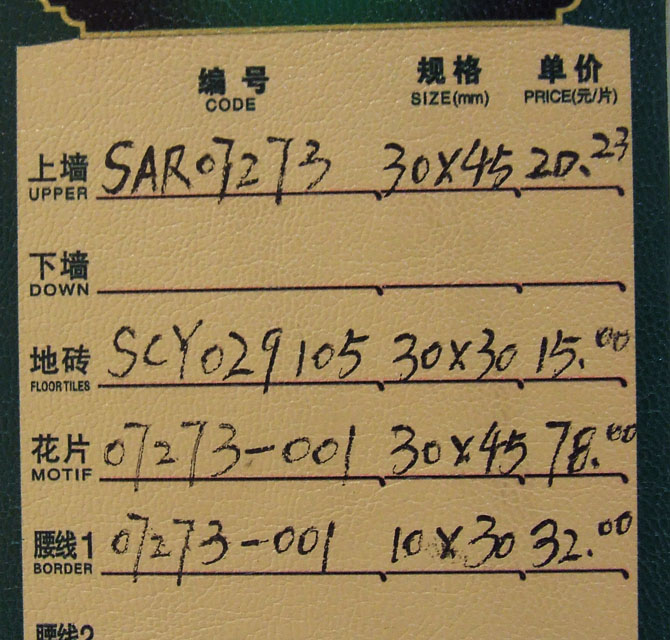 编号 规格 单价
CODE SIZE(mm) PRICE(元/片)
上墙 SAR07273 30X45 20.23
UPPER
下墙
DOWN
地砖 SCY029105 30X30 15.00
FLOOR TILES
花片 07273-001 30X45 78.00
MOTIF
腰线1 07273-001 10X30 32.00
BORDER
腰线2